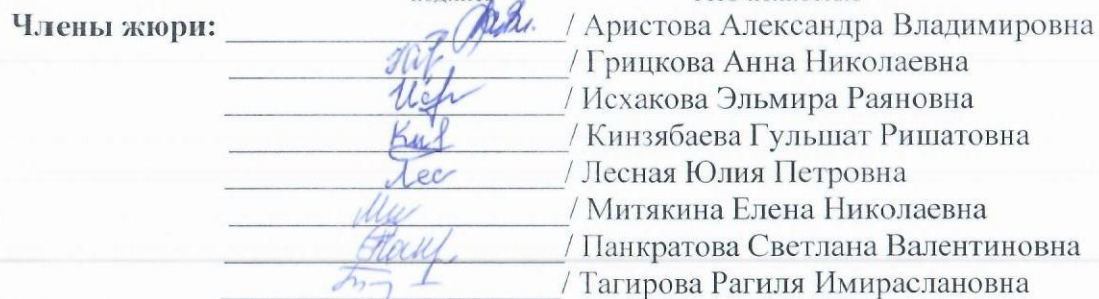 Члены жюри: / Аристова Александра Владимировна
/ Грицкова Анна Николаевна
/ Исхакова Эльмира Раяновна
/ Кинзябаева Гульшат Ришатовна
Лес / Лесная Юлия Петровна
/ Митякина Елена Николаевна
/ Панкратова Светлана Валентиновна
/ Тагирова Рагиля Имираслановна